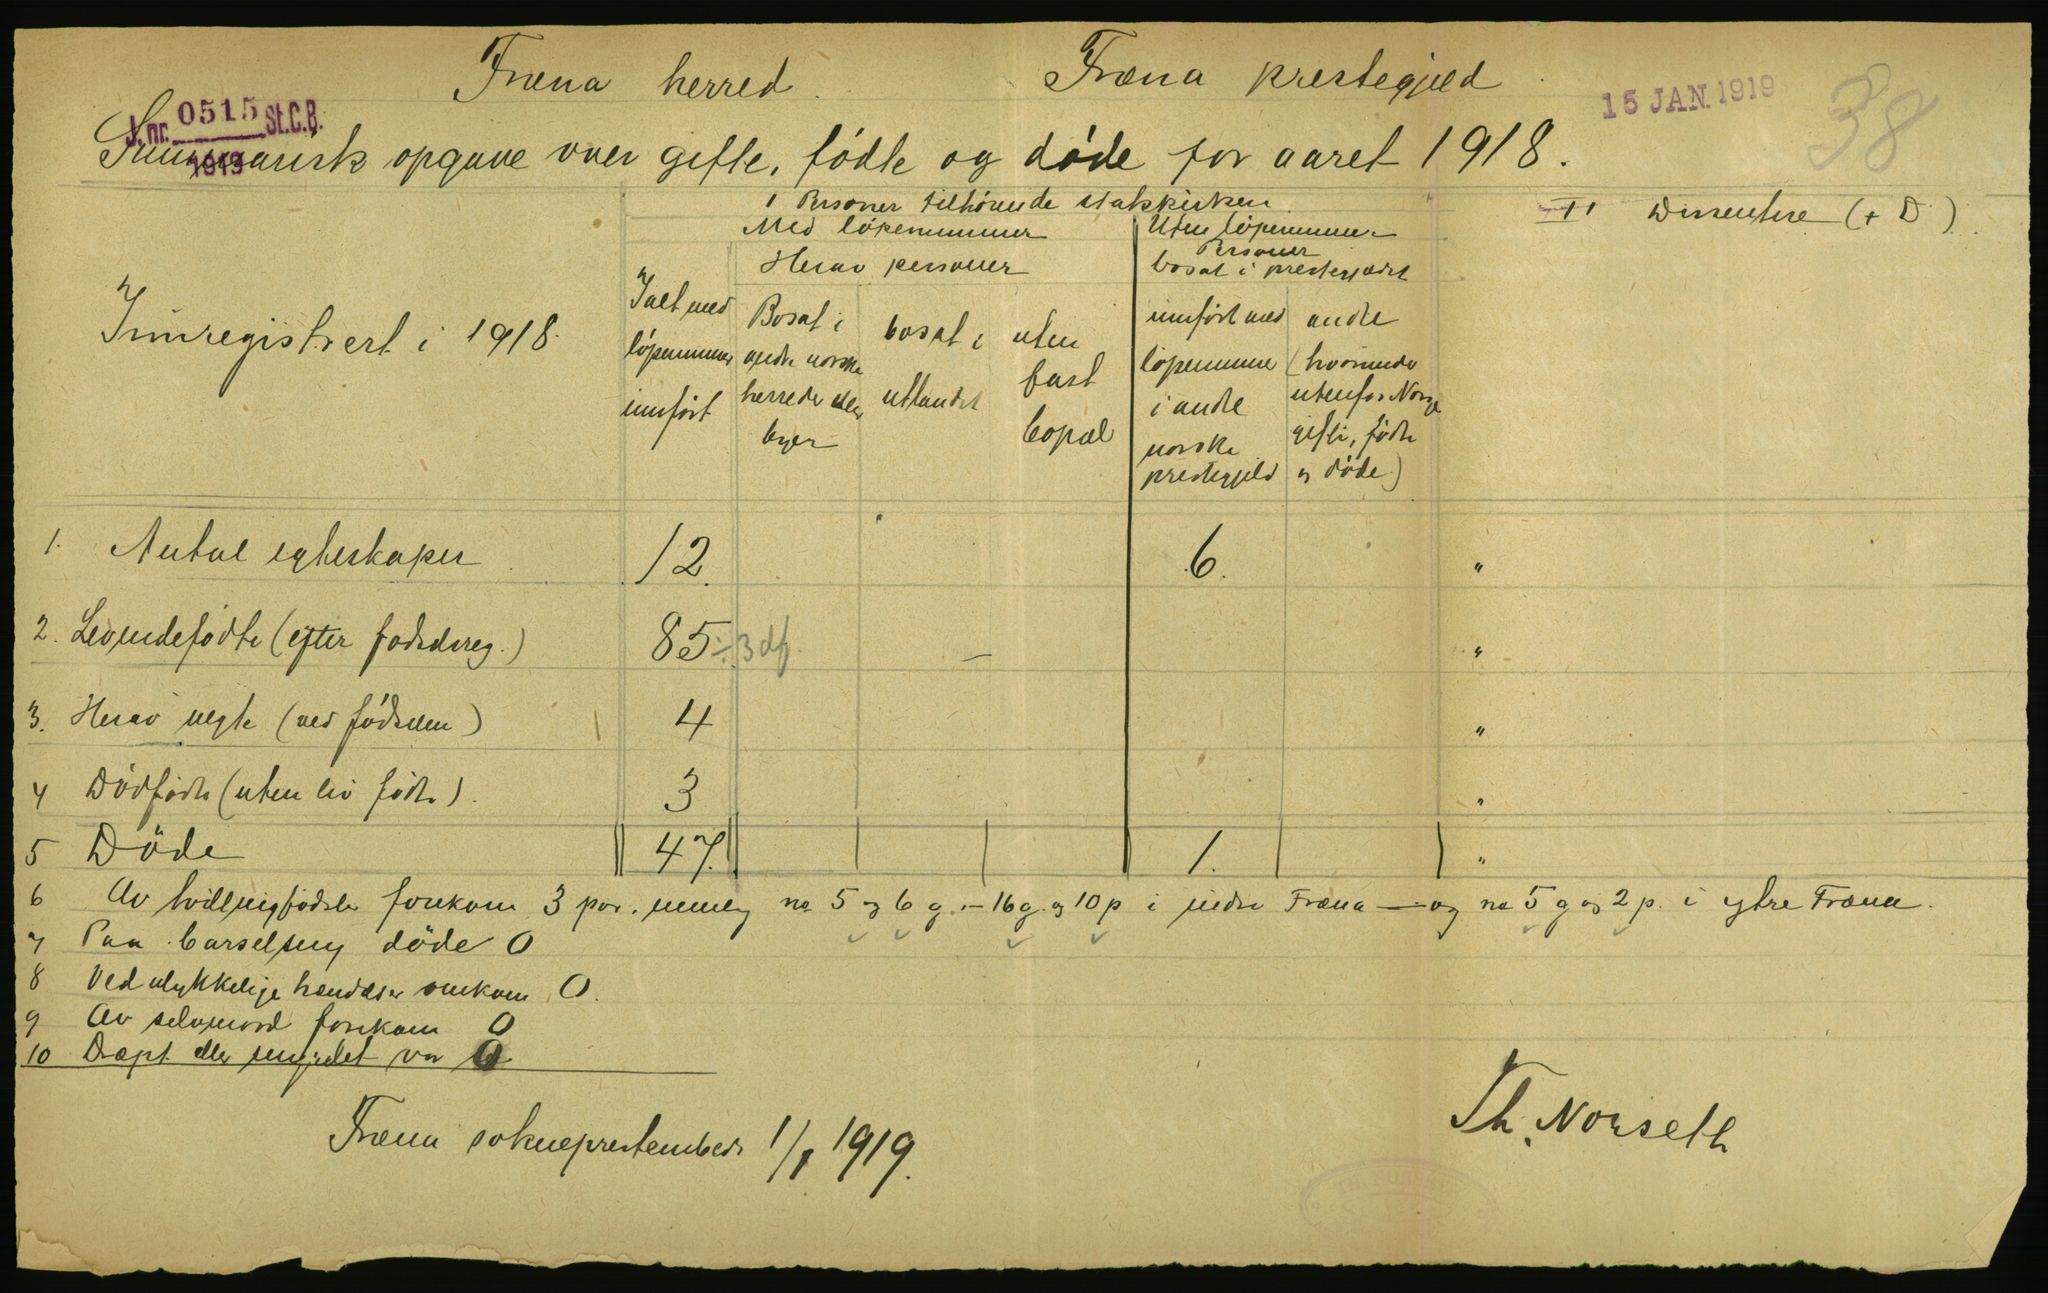 Fræna herred. Fræna prestegjeld
15 JAN. 1919
38
J. nr. 0515 St.C.B.
1919
Summarisk opgave over gifte, fødte og døde for aaret 1918.
I Personer tilhørende statskirken
II Dissentere (+ D)
Med løpenummer
Uten løpenummer
Herav personer
Personer
bosat i prestegjeldet
Innregistrert i 1918.
Ialt med
løpenummer
innført
Bosat i
andre norske
herreder eller
byer
bosat i
utlandet
uten
fast
bopæl
innført med
løpenummer
i andre
norske
prestegjeld
andre
(hvorunder
utenfor Norge
gifte, fødte
og døde)
1. Antal egteskaper 12. 6. "
2. Levendefødte (efter fødselsreg.) 85 ÷ 3 df. — "
3. Herav uegte (ved fødselen) 4 "
4 Dødfødte (uten liv fødte). 3 "
5 Døde 47. 1. "
6 Av tvillingfødsler forekom 3 par, nemlig no 5 og 6 g. – 16 g. og 10 p i indre Fræna — og no 5 g og 2 p. i ytre Fræna.
7 Paa barselseng døde 0
8 Ved ulykkelige hændelser omkom 0.
9 Av selvmord forekom 0
10 Dræpt eller myrdet var 0
Fræna sokneprestembede 1/1 1919.
Th. Norseth